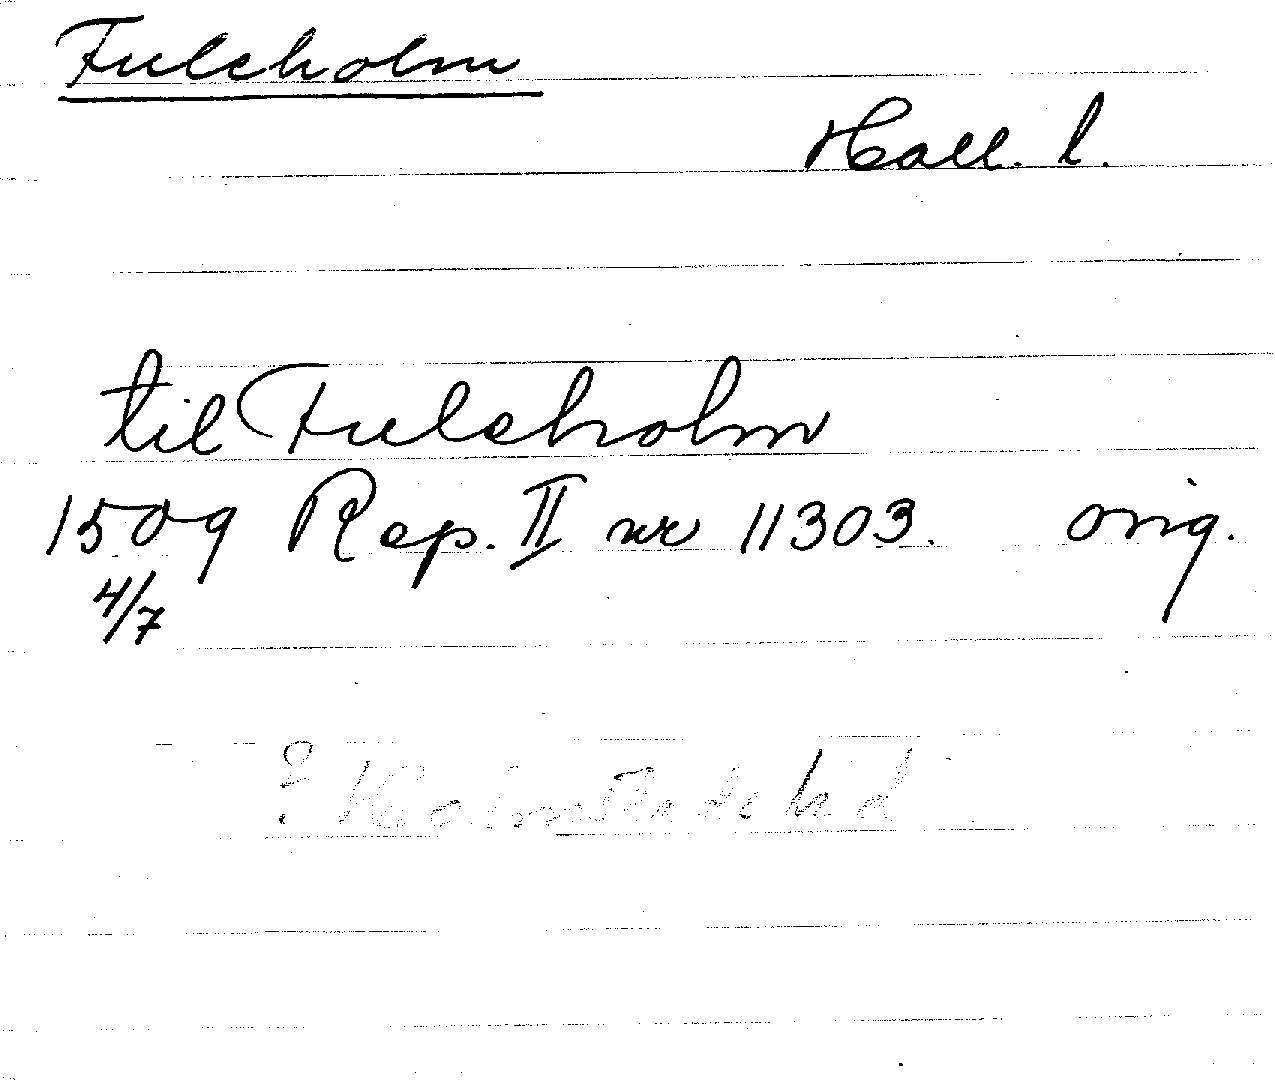 Fulcholm
Hall. l.
til Fulcholm
1509 Rep. II nr 11303. orig.
4/7
?